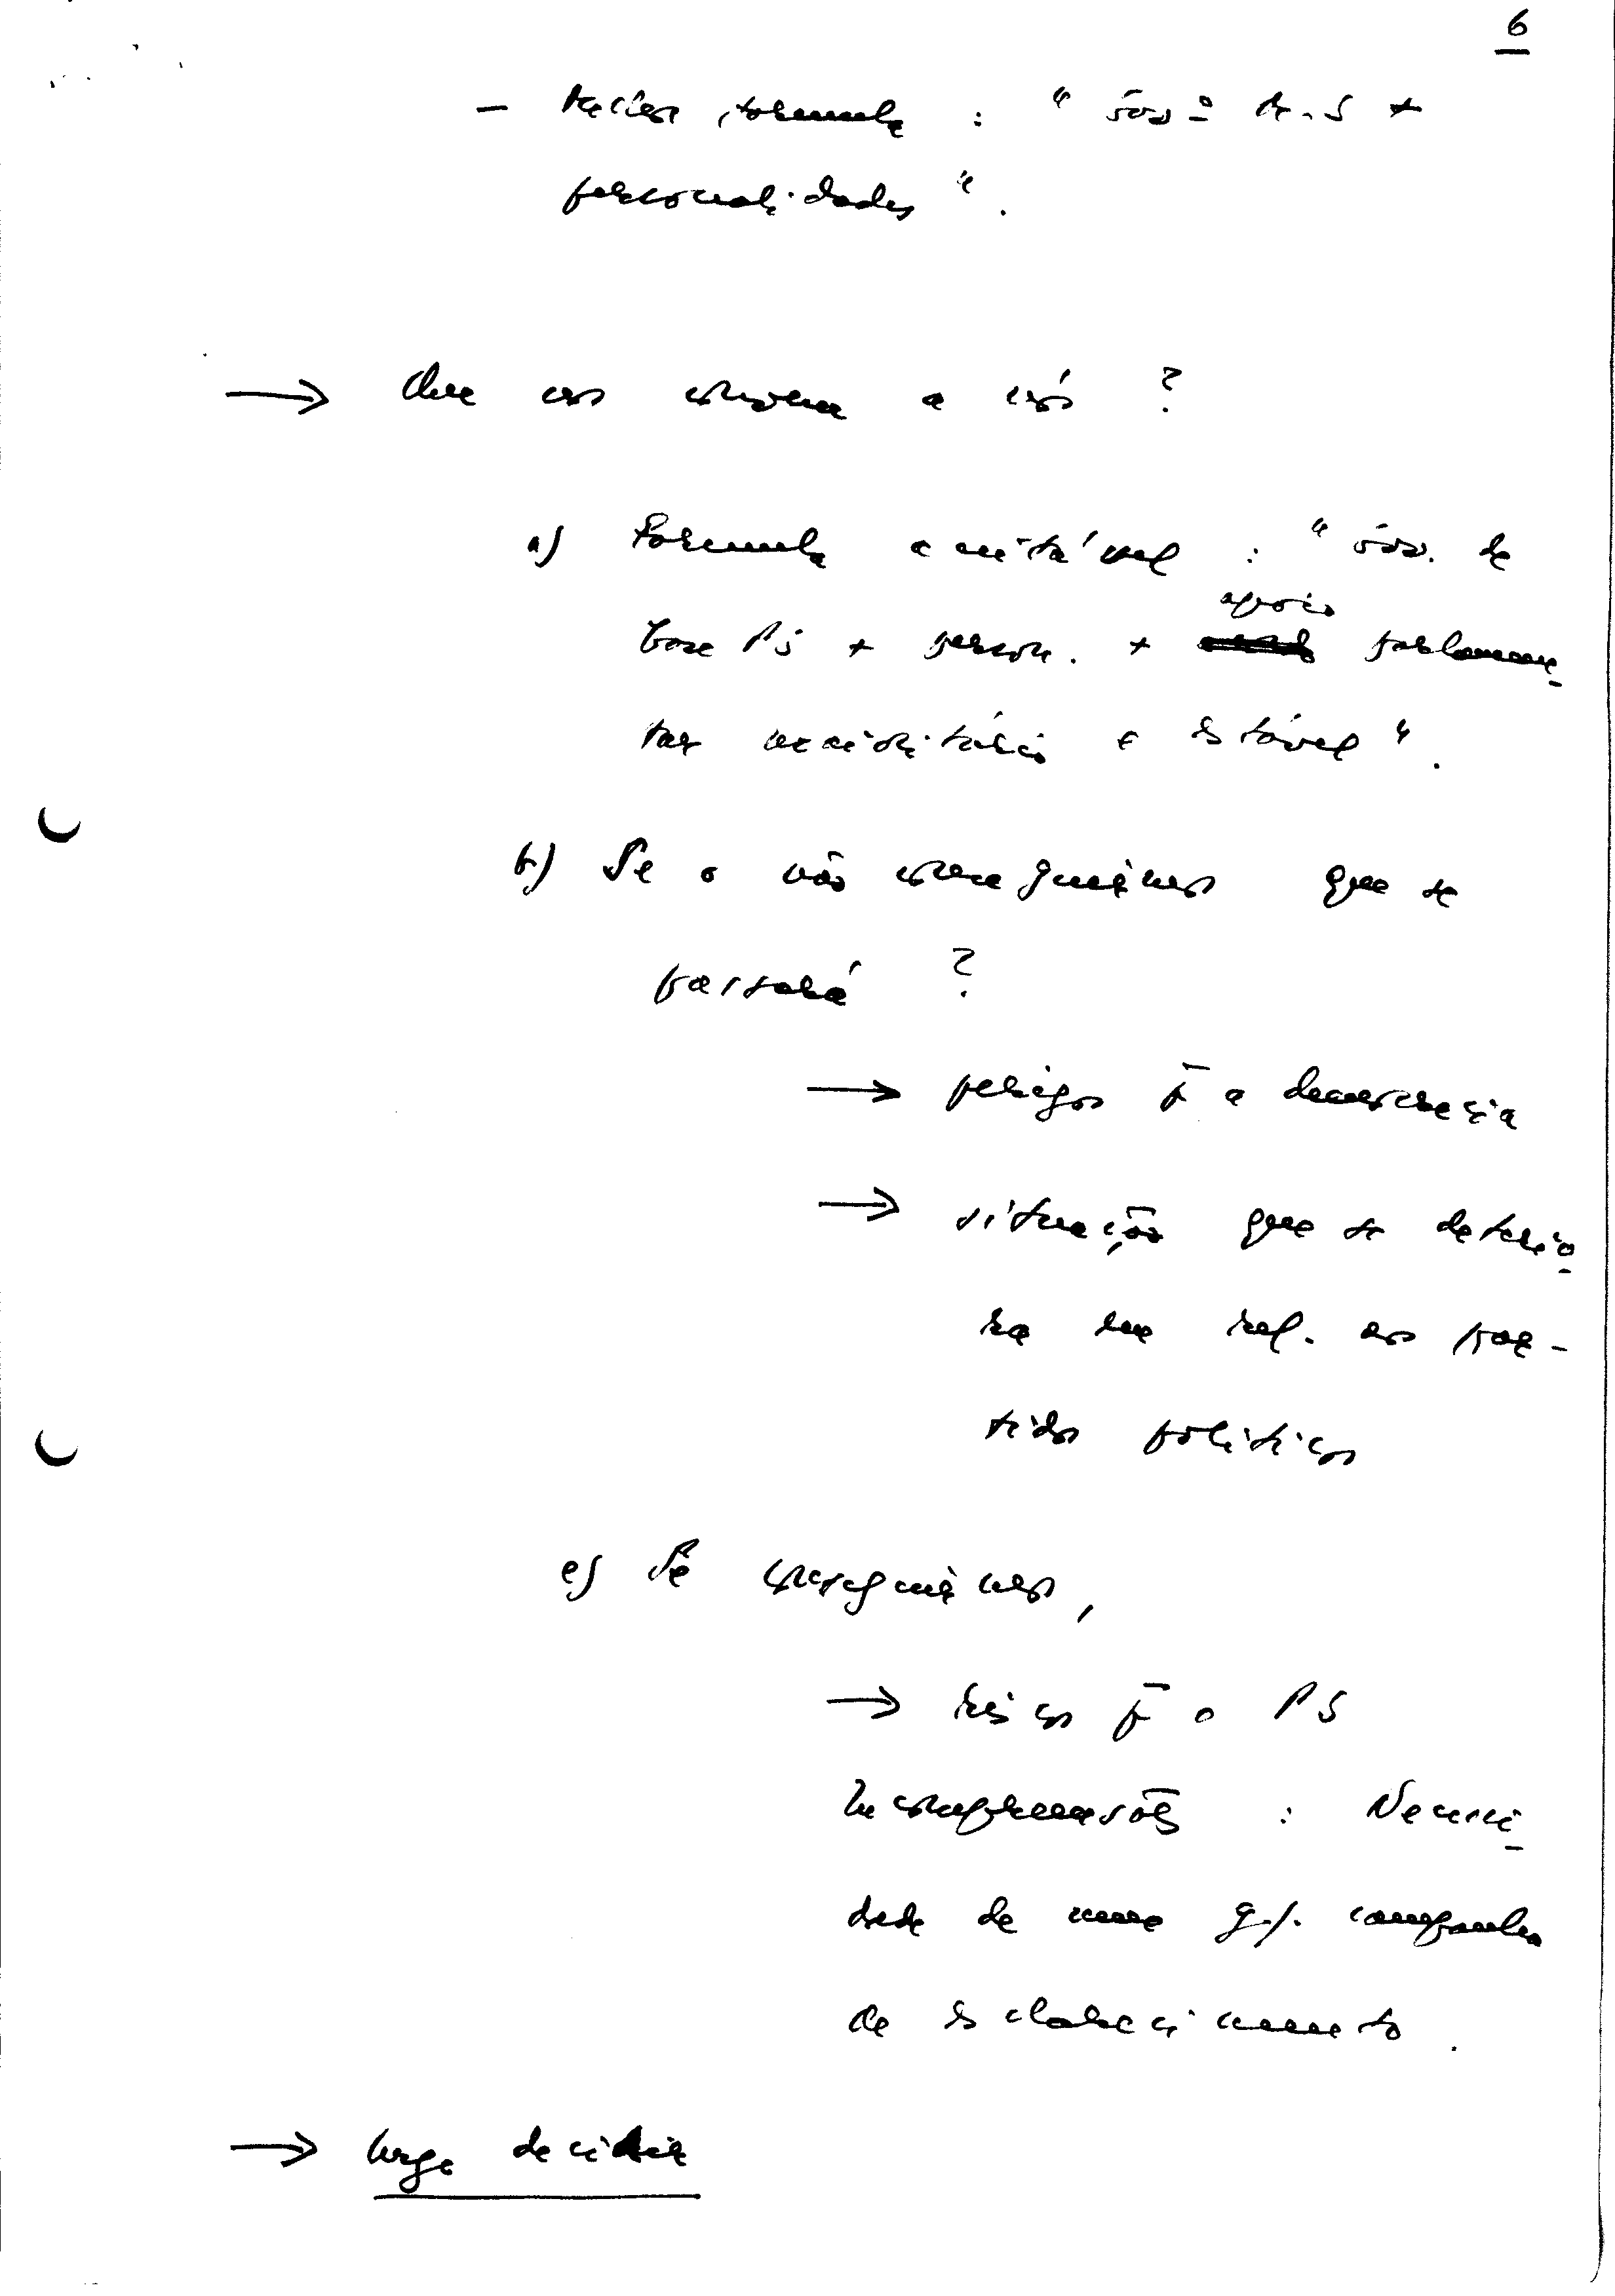 6
— fórmula : " gov.º P.S +
personalidades ".
→ Que nos convém a nós ?
a) Fórmula aceitável : " gov. de
base PS + person. + apoio parlamen-
tar maioritário e estável ".
b) Se o não conseguirmos que se
passará ?
→ perigos p̄ a democracia
→ situação que se deterio-
ra em rel. aos par-
tidos políticos
c) Se conseguirmos,
→ riscos p̄ o PS
Incompreensões : Necessi-
dade de uma g/. campanha
de esclarecimento.
→ Urge decidir